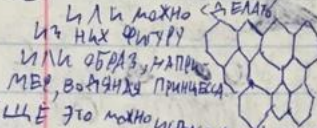 ИЛИ МОЖНО СДЕЛАТЬ
ИЗ НИХ ФИГУРУ
ИЛИ ОБРАЗ, НАПРИ
МЕР, ВОДЯНАЯ ПРИНЦЕССА.
ЩЁ ЭТО МОЖНО